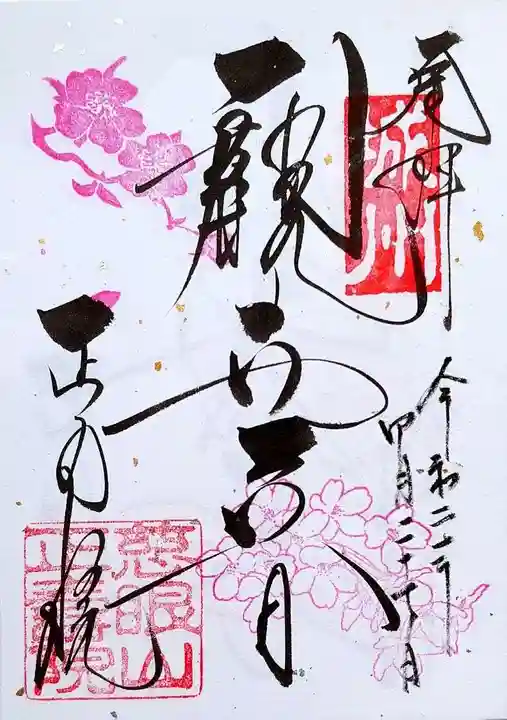 奉拝
城州
令和二年
四月二十日
観世音
正寿院
慈眼山
正壽院